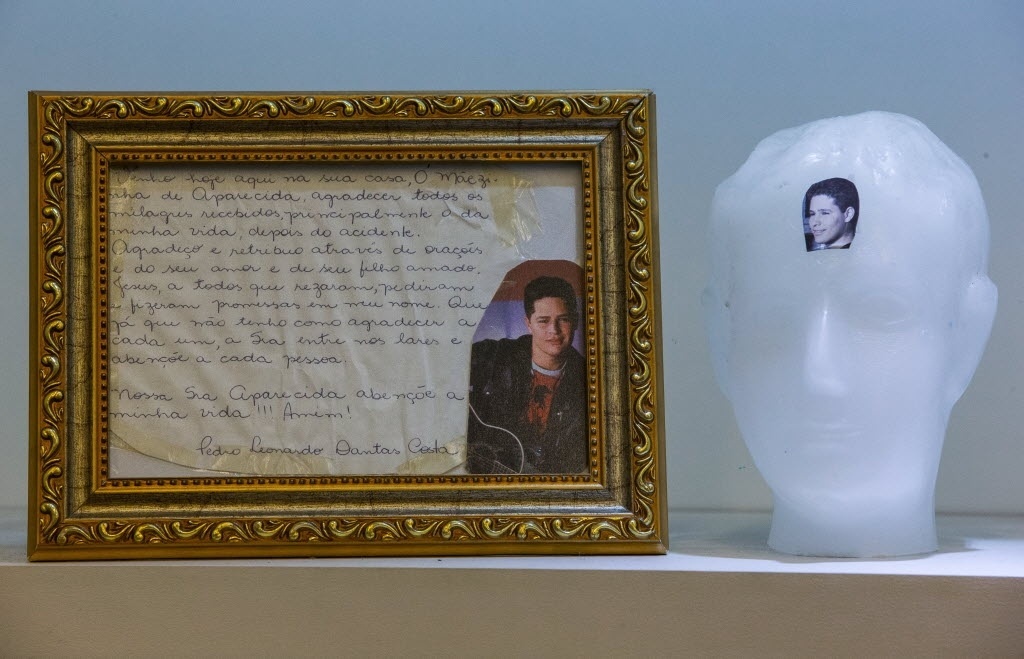 Venho hoje aqui na sua casa, Ó Mãezi-
nha de Aparecida, agradecer todos os
milagres recebidos, principalmente o da
minha vida, depois do acidente.
Agradeço e retribuo através de orações
e do seu amor e de seu filho amado,
Jesus, a todos que rezaram, pediram
e fizeram promessas em meu nome. Que
já que não tenho como agradecer a
cada um, a Sra entre nos lares e
abençõe a cada pessoa.
Nossa Sra Aparecida abençõe a
minha vida!!! Amém!
Pedro Leonardo Dantas Costa